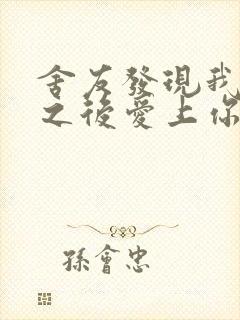 舍友發現我
之後愛上你
孫會忠